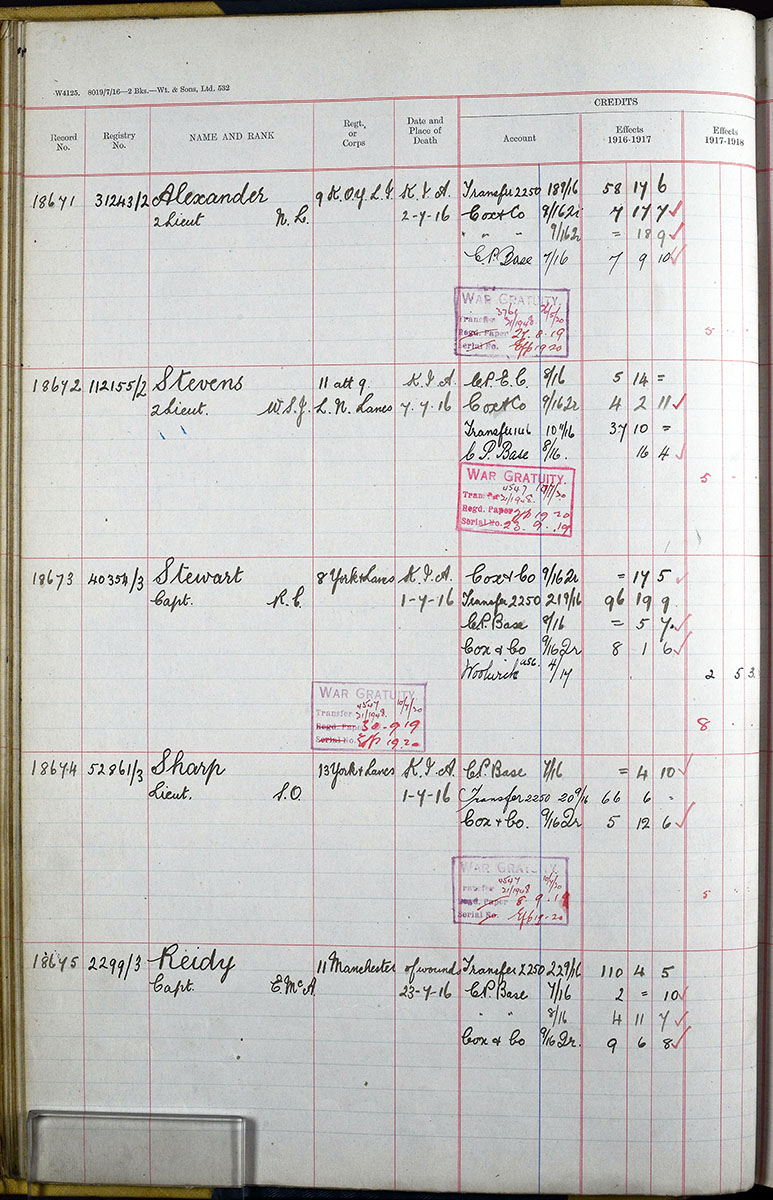 W4125. 8019/7/16—2 Bks.—Wt. & Sons, Ltd. 532
CREDITS
Record No. Registry No. NAME AND RANK Regt. or Corps Date and Place of Death Account Effects 1916-1917 Effects 1917-1918
18671 31243/2 Alexander 9 K.O.Y.L.I. K.I.A. Transfer 2250 18 9/16 58 17 6
2 Lieut N. L. 2-7-16 Cox & Co 9/16 2i 7 17 7
" " 9/16 2r = 18 9
C.P. Base 7/16 7 9 10
WAR GRATUITY.
Transfer 21/1948
Regd. Paper 27.8.19
Serial No. Eff 19.20
5
18672 112155/2 Stevens 11 att 9. K.I.A. C.P.E.C. 8/16 5 14 =
2 Lieut. W.S.J. L.N. Lancs 7.7.16 Cox & Co 9/16 2r 4 2 11
Transfer 10 9/16 37 10 =
C.P. Base 8/16. 16 4
WAR GRATUITY.
4547
Transfer 21/1948.
Regd. Paper Eff 19.20
Serial No. 23.9.19
5
18673 40354/3 Stewart 8 York & Lancs K.I.A. Cox & Co 9/16 2r = 17 5
Capt. R. C. 1-7-16 Transfer 2250 21 9/16 96 19 9
C.P. Base 8/16 = 5 7
Cox & Co 9/16 2r 8 1 6
Woolwich 4/17 2 5 3
WAR GRATUITY
4547 10/7/20
Transfer 21/1948.
Regd. Paper 30.9.19
Serial No. Eff 19.20
8
18674 52861/3 Sharp 13 York & Lancs K.I.A. C.P. Base 7/16 = 4 10
Lieut. S.O. 1-7-16 Transfer 2250 20 9/16 66 6 -
Cox & Co. 9/16 2r 5 12 6
WAR GRATUITY.
4547
Transfer 21/1948
Regd. Paper 8.9.19
Serial No. Eff 19.20
5
18675 2299/3 Reidy 11 Manchester of wounds Transfer 2250 22 9/16 110 4 5
Capt. E. McA. 23-7-16 C.P. Base 7/16 2 = 10
" " 8/16 4 11 7
Cox & Co 9/16 2r. 9 6 8